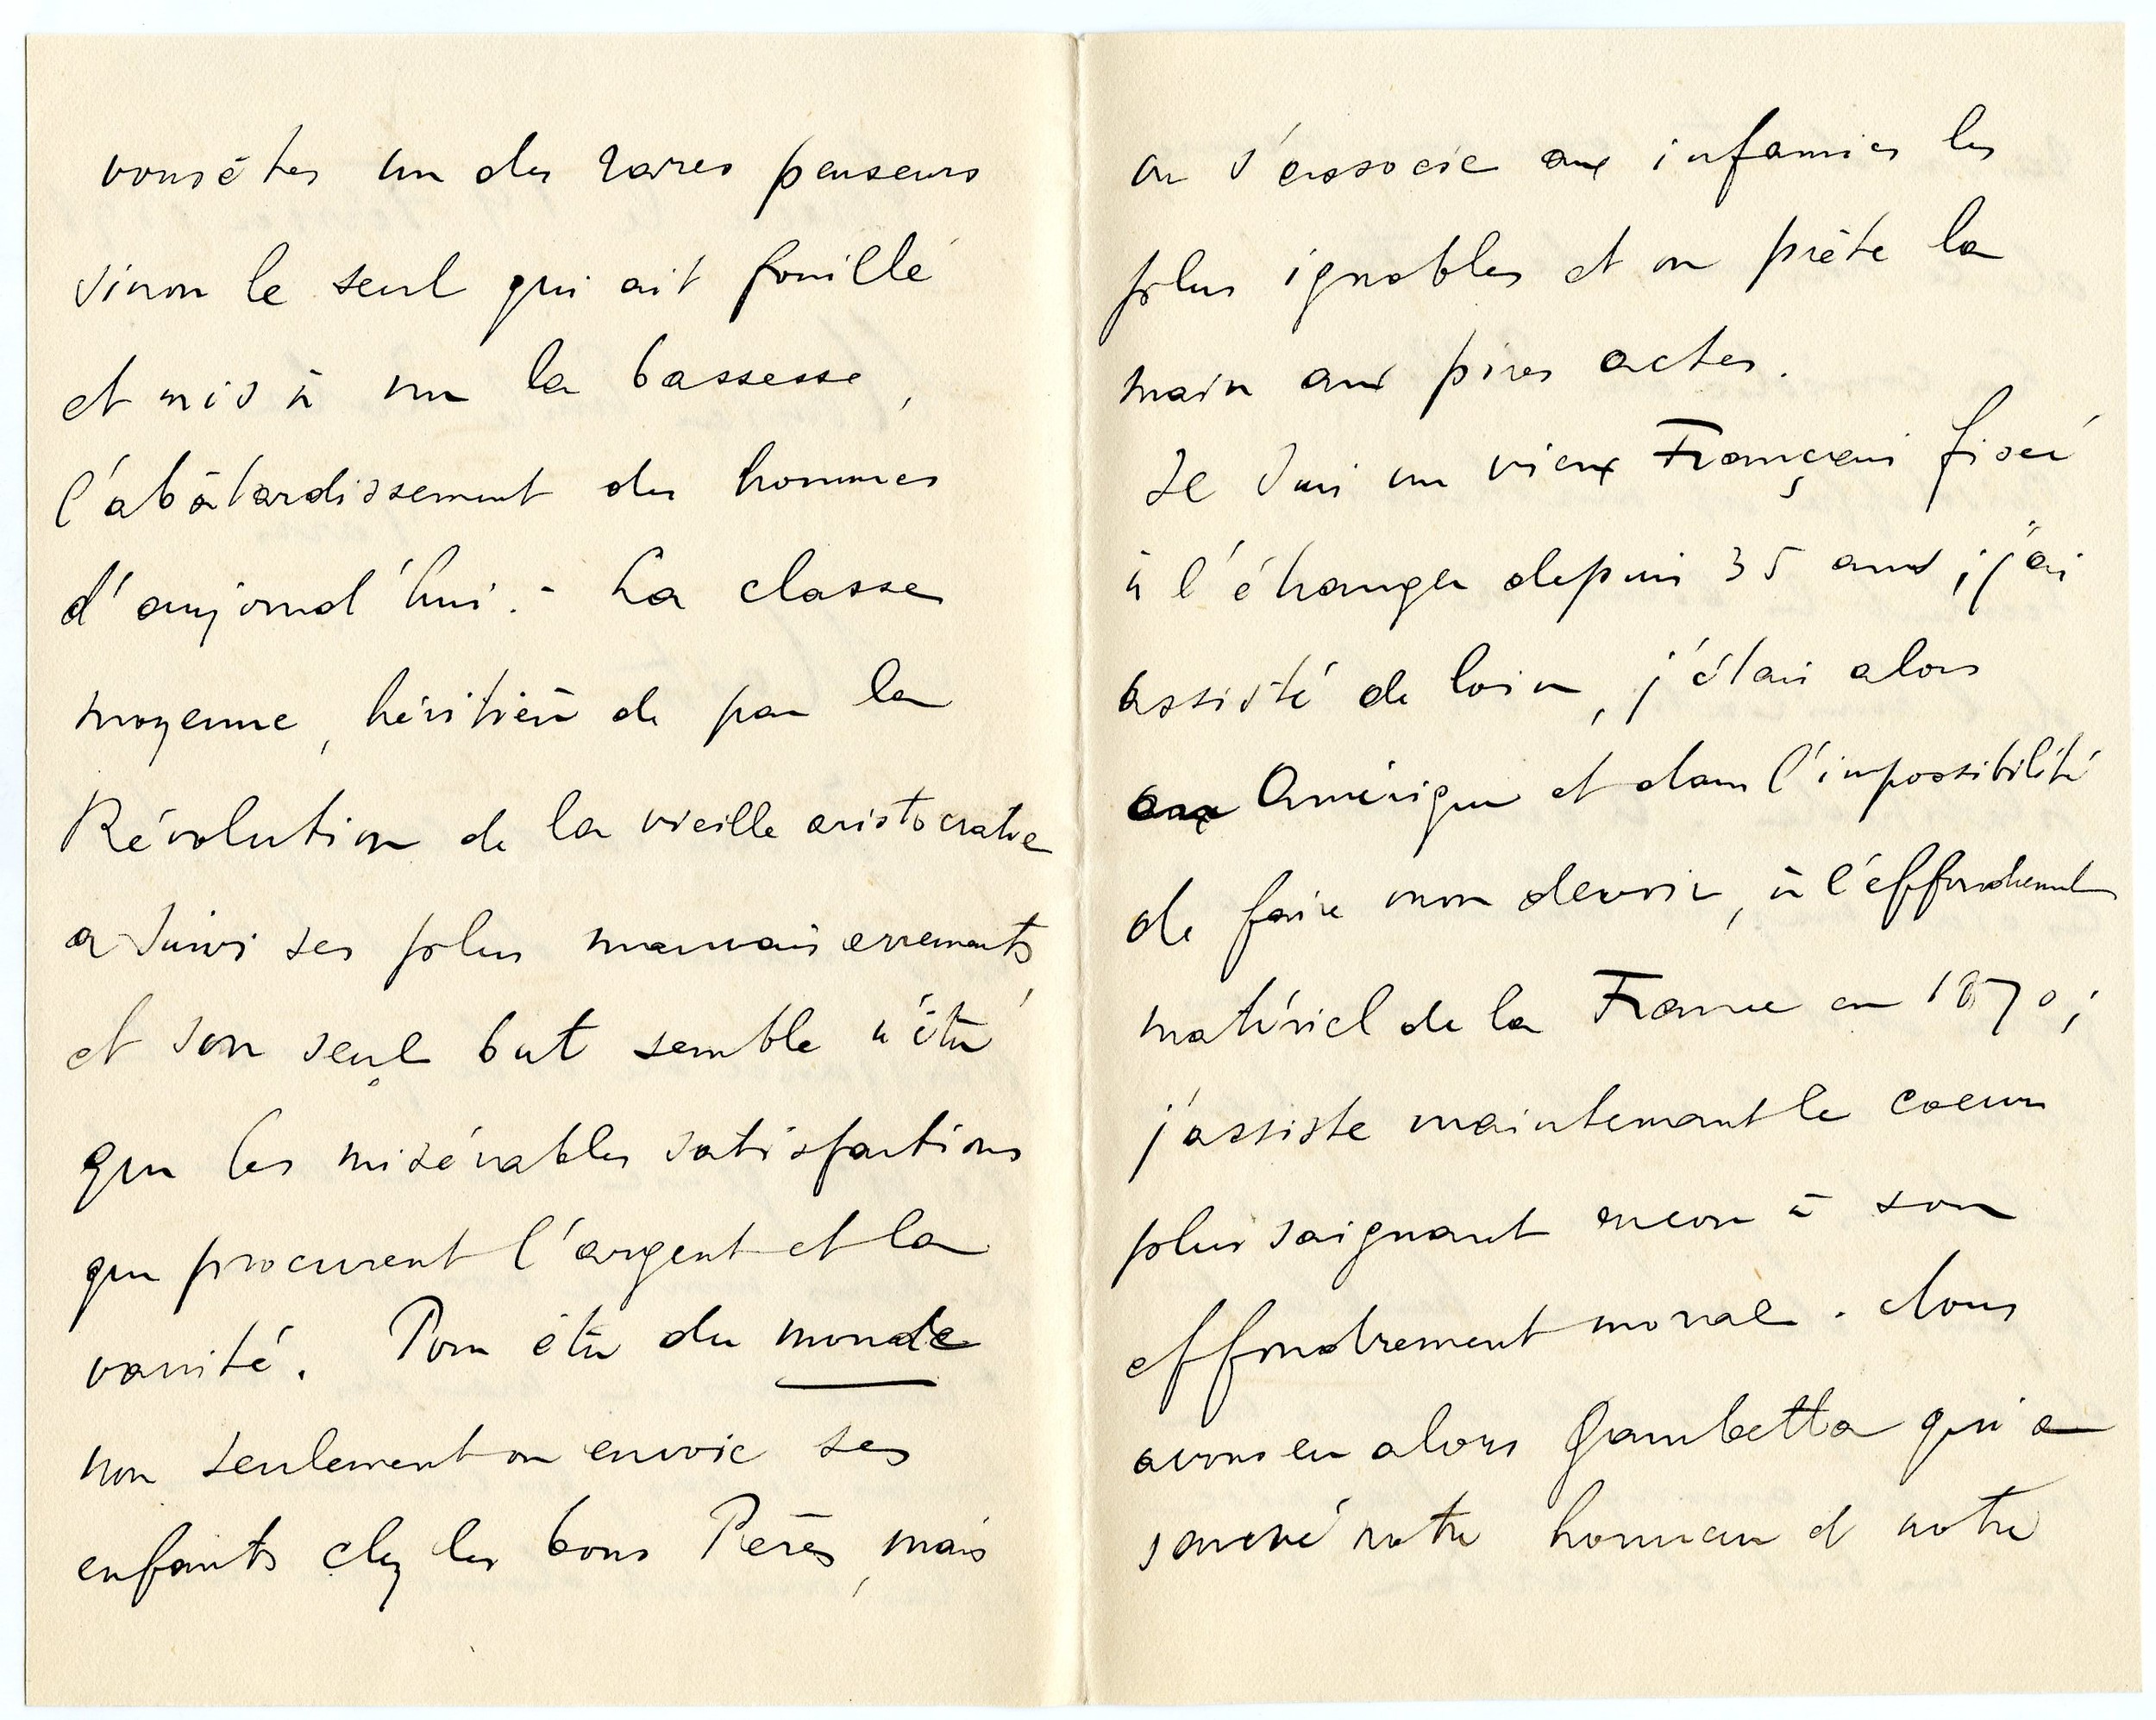 vous êtes un des rares penseurs
sinon le seul qui ait fouillé
et mis à nu la bassesse,
l'abâtardissement des hommes
d'aujourd'hui. - La classe
moyenne, héritière de par la
Révolution de la vieille aristocratie
a suivi ses plus mauvais errements,
et son seul but semble n'être
que les misérables satisfactions
que procurent l'argent et la
vanité. Pour être du monde
non seulement on envoie ses
enfants chez les bons Pères, mais
on s'associe aux infamies les
plus ignobles et on prête la
main aux pires actes.
Je suis un vieux Français fixé
à l'étranger depuis 35 ans ; j'ai
assisté de loin, j'étais alors
en Amérique et dans l'impossibilité
de faire mon devoir, à l'effondrement
matériel de la France en 1870 ;
j'assiste maintenant le coeur
plus saignant encore à son
effondrement moral. Nous
avons eu alors Gambetta qui a
sauvé notre honneur et notre